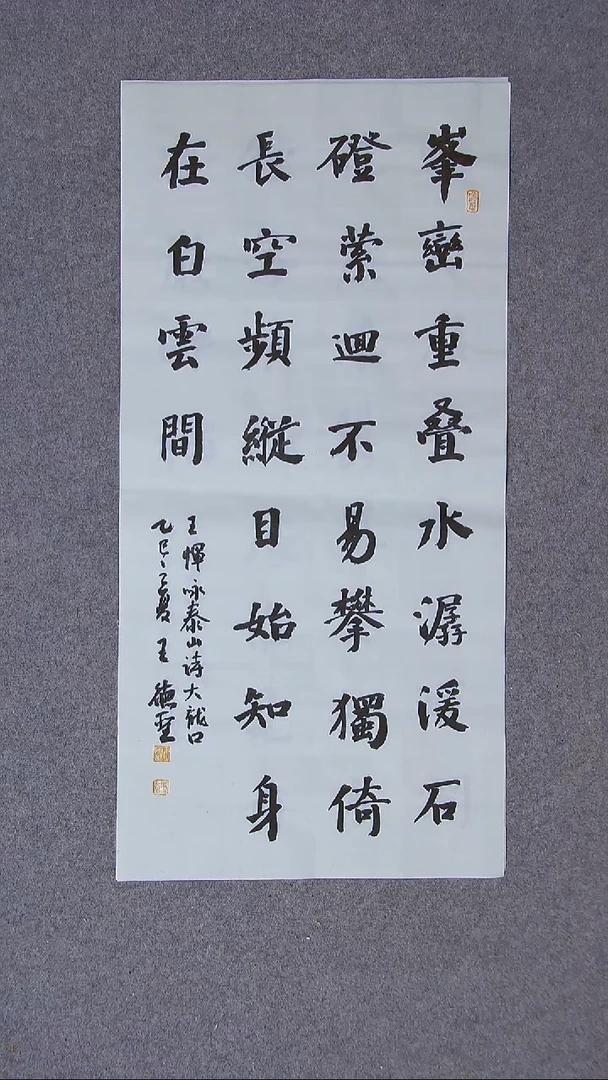 峯巒重叠水潺湲石
磴縈迴不易攀獨倚
長空頻縱目始知身
在白雲間
王惲咏泰山诗大龍口
乙巳之夏王德聖